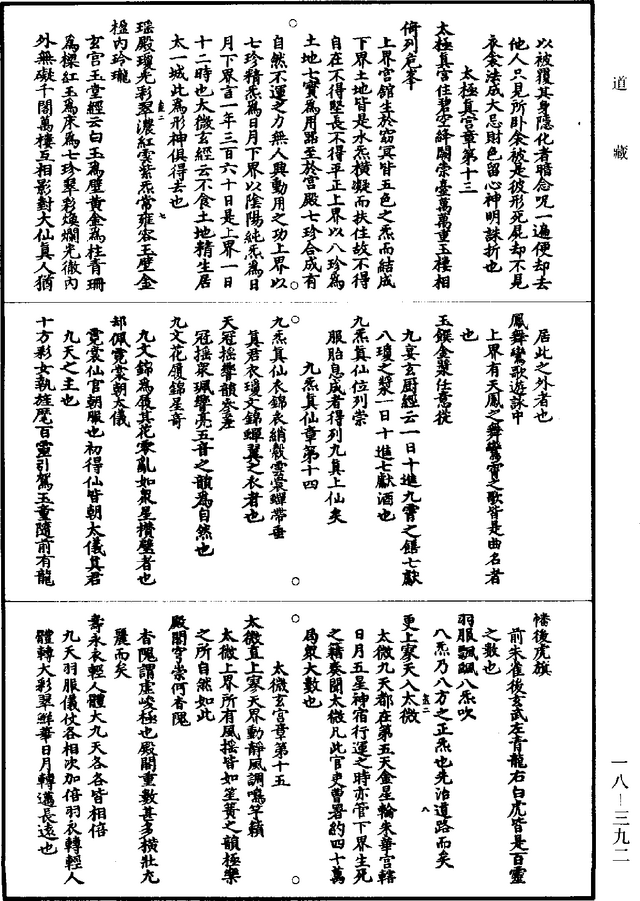 道藏
以被覆其身隱化者暗念呪一遍便却去
他人只見所卧余被是彼形死屍却不見
衣衾法成大忌財色留心神明誅折也
太極真宫章第十三
太極真宫住碧空絳闕崇臺萬萬重玉樓相
倚列危峯
上界宫館生於窈冥皆五色之炁而結成
下界土地皆是水炁橫凝而扶住故不得
自在不得堅長不得平正上界以八珍為
土地七寶為用器至於宫殿七珍合成有
自然不運之力無人興動用之功上界以
七珍精炁為日月下界以陰陽純炁為日
月下界言一年三百六十日是上界一日
十二時也太微玄經云不食土地精生居
太一城此為形神俱得去也
瑶殿瓊光彩翠濃紅雲紫炁常雍容玉壁金
楹内玲瓏
玄宫玉堂經云白玉為壁黄金為柱青珊
為樑紅玉為床為七珍翠彩煥爛光徹内
外無礙千閤萬樓互相影對大仙真人猶
居此之外者也
鳳舞鸞歌遊詠中
上界有天鳳之舞鸞賓之歌皆是曲名者
也
玉饌金漿任意從
九宴玄厨經云一日十進九霄之饍七獻
八瓊之漿一日十進七獻酒也
九炁真仙位列崇
服胎息成者得列九真上仙矣
九炁真仙章第十四
九炁真仙衣錦衣綃縠雲裳蟬帶垂
真君衣瓊文錦蟬翼之衣者也
天冠摇響韻參差
冠摇衆珮響亮五音之韻為自然也
九文花履錦星奇
九文錦為履其花零亂如衆星攢壁者也
却佩霓裳朝太儀
霓裳仙官朝服也初得仙皆朝太儀真君
九天之主也
十方彩女執旌麾百靈引駕玉童隨前有龍
旛後虎旗
前朱雀後玄武左青龍右白虎皆是百靈
之數也
羽服飄飄八炁吹
八炁乃八方之正炁也先治道路而矣
更上寥天入太微
太微九天都在第五天金星輪朱華宫轄
日月五星神宿行運之時亦管下界生死
之籍奏聞太微凡此官吏曹署約四十萬
爲衆大數也
太微玄宫章第十五
太微直上寥天界動静風調鳴竽籟
太微上界所有風摇皆如笙簧之韻極樂
之所自然如此
殿閣穹崇何杳隗
杳隗謂虚峻極也殿閣重數甚多橫壯尤
麗而矣
壽永衣輕人體大九天各各皆相倍
九天羽服儀仗各相次加倍羽衣轉輕人
體轉大彩翠鮮華日月轉邁長遠也
一八—三九二